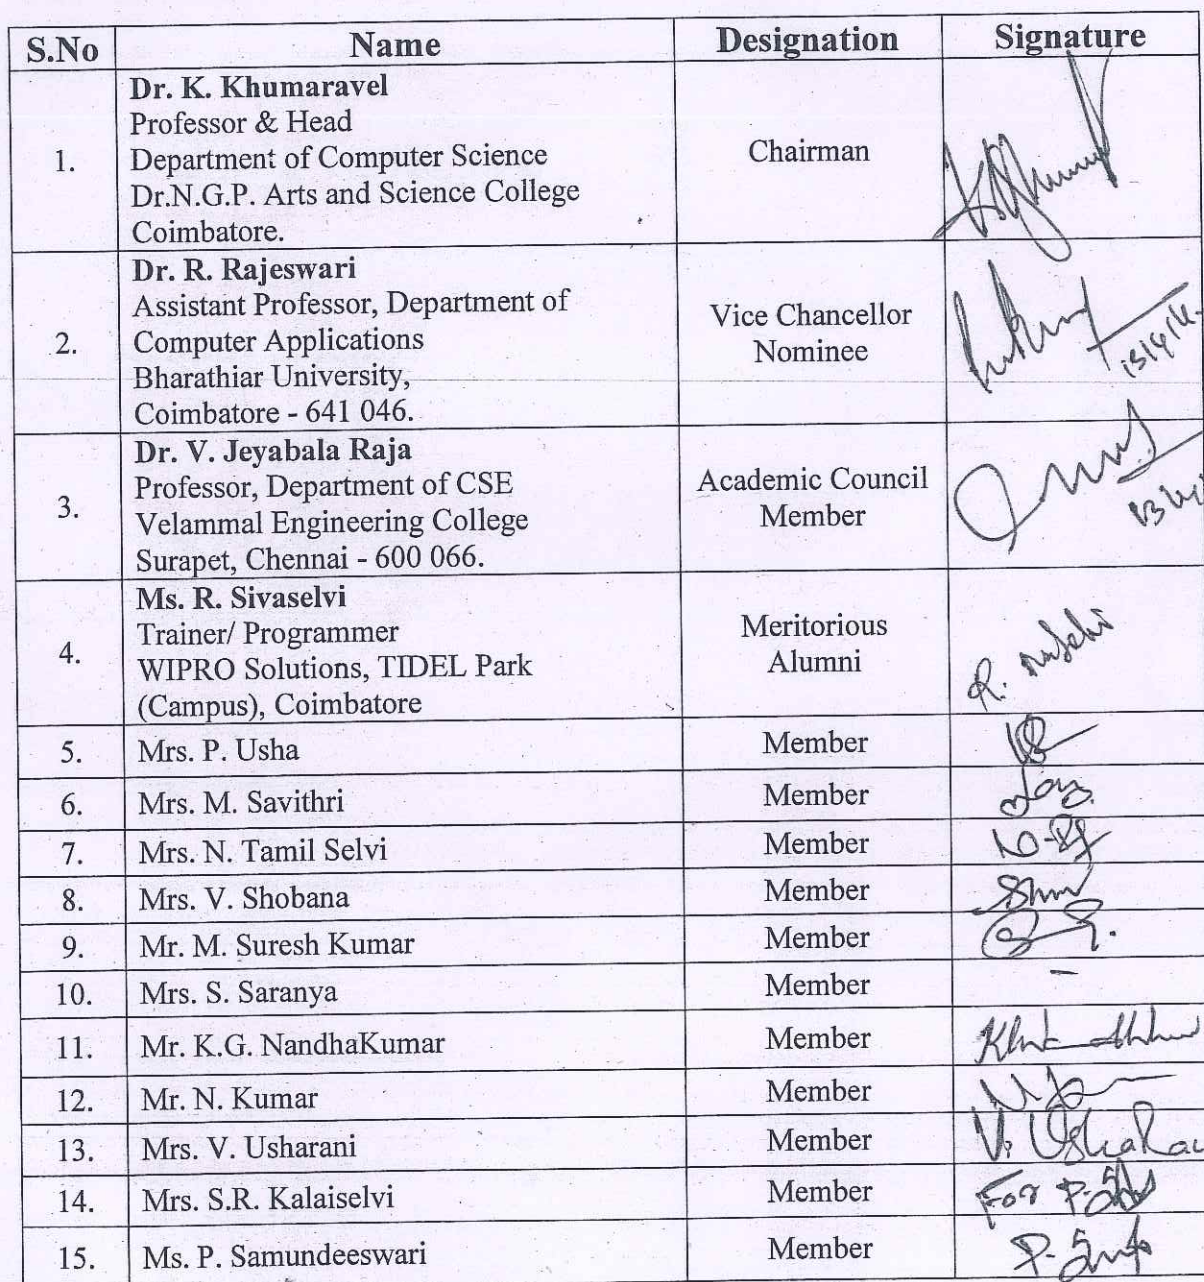 S.No Name Designation Signature
1. Dr. K. Khumaravel
Professor & Head
Department of Computer Science
Dr.N.G.P. Arts and Science College
Coimbatore.
Chairman
2. Dr. R. Rajeswari
Assistant Professor, Department of
Computer Applications
Bharathiar University,
Coimbatore - 641 046.
Vice Chancellor
Nominee
3. Dr. V. Jeyabala Raja
Professor, Department of CSE
Velammal Engineering College
Surapet, Chennai - 600 066.
Academic Council
Member
4. Ms. R. Sivaselvi
Trainer/ Programmer
WIPRO Solutions, TIDEL Park
(Campus), Coimbatore
Meritorious
Alumni
5. Mrs. P. Usha Member
6. Mrs. M. Savithri Member
7. Mrs. N. Tamil Selvi Member
8. Mrs. V. Shobana Member
9. Mr. M. Suresh Kumar Member
10. Mrs. S. Saranya Member -
11. Mr. K.G. NandhaKumar Member
12. Mr. N. Kumar Member
13. Mrs. V. Usharani Member
14. Mrs. S.R. Kalaiselvi Member For
15. Ms. P. Samundeeswari Member